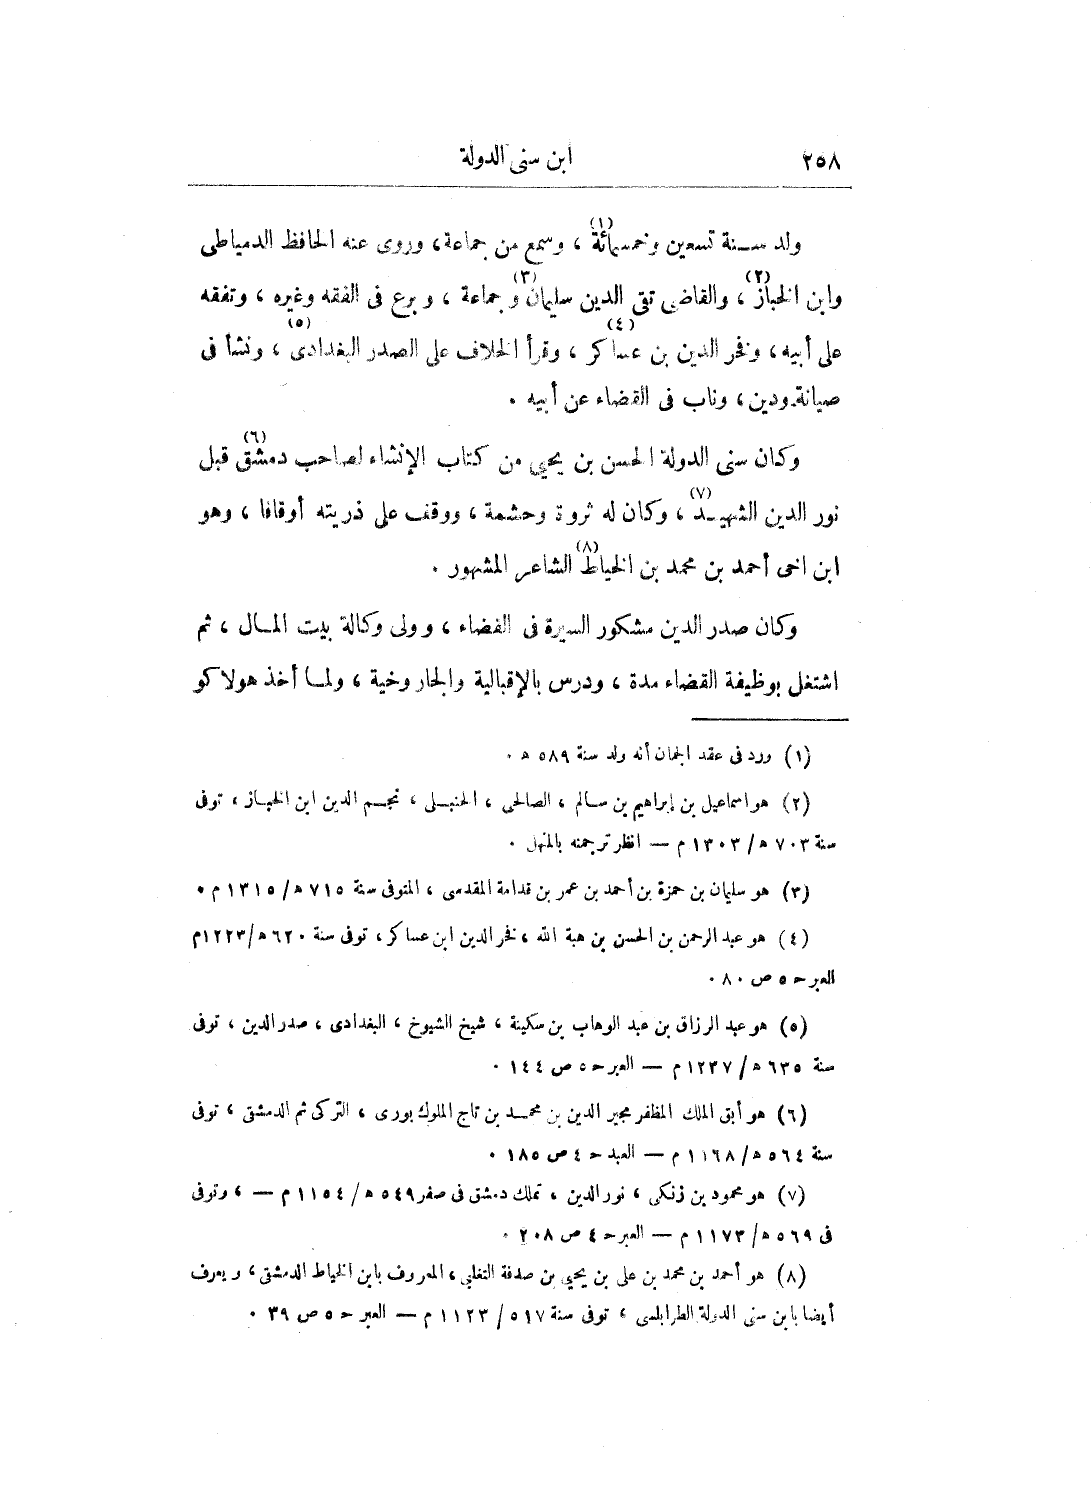 ٢٥٨ ابن سنى الدولة
ولد سنة تسعين وخمسمائة (١) ، وسمع من جماعة ، وروى عنه الحافظ الدمياطى
وابن الخباز (٢) ، والقاضى تقى الدين سليمان (٣) وجماعة ، وبرع فى الفقه وغيره ، وتفقه
على أبيه ، وفخر الدين بن عساكر (٤) ، وقرأ الخلاف على الصدر البغدادى (٥) ، ونشأ فى
صيانة ودين ، وناب فى القضاء عن أبيه .
وكان سنى الدولة الحسن بن يحيى من كتاب الإنشاء لصاحب دمشق (٦) قبل
نور الدين الشهيد (٧) ، وكان له ثروة وحشمة ، ووقف على ذريته أوقافا ، وهو
ابن اخى أحمد بن محمد بن الخياط (٨) الشاعر المشهور .
وكان صدر الدين مشكور السيرة فى القضاء ، وولى وكالة بيت المال ، ثم
اشتغل بوظيفة القضاء مدة ، ودرس بالإقبالية والجاروخية ، ولما أخذ هولاكو
(١) ورد فى عقد الجمان أنه ولد سنة ٥٨٩ ه .
(٢) هو اسماعيل بن إبراهيم بن سالم ، الصالحى ، الحنبلى ، نجم الدين ابن الخباز ، توفى
سنة ٧٠٣ ه/ ١٣٠٣ م — انظر ترجمته بالمنهل .
(٣) هو سليمان بن حمزة بن أحمد بن عمر بن قدامة المقدسى ، المتوفى سنة ٧١٥ ه/ ١٣١٥ م .
(٤) هو عبد الرحمن بن الحسن بن هبة الله ، فخر الدين ابن عساكر ، توفى سنة ٦٢٠ ه/١٢٢٣م
العبر حـ ٥ ص ٨٠ .
(٥) هو عبد الرزاق بن عبد الوهاب بن سكينة ، شيخ الشيوخ ، البغدادى ، صدر الدين ، توفى
سنة ٦٣٥ ه/ ١٢٣٧ م — العبر حـ ٥ ص ١٤٤ .
(٦) هو أبق الملك المظفر مجير الدين بن محمد بن تاج الملوك بورى ، التركى ثم الدمشقى ، توفى
سنة ٥٦٤ ه/ ١١٦٨ م — العبد حـ ٤ ص ١٨٥ .
(٧) هو محمود بن زنكى ، نور الدين ، تملك دمشق فى صفر ٥٤٩ ه/ ١١٥٤ م — ، وتوفى
فى ٥٦٩ ه/ ١١٧٣ م — العبر حـ ٤ ص ٢٠٨ .
(٨) هو أحمد بن محمد بن على بن يحيى بن صدقة التغلبى ، المعروف بابن الخياط الدمشقى ، ويعرف
أيضا بابن سنى الدولة الطرابلسى ، توفى سنة ٥١٧ / ١١٢٣ م — العبر حـ ٥ ص ٣٩ .